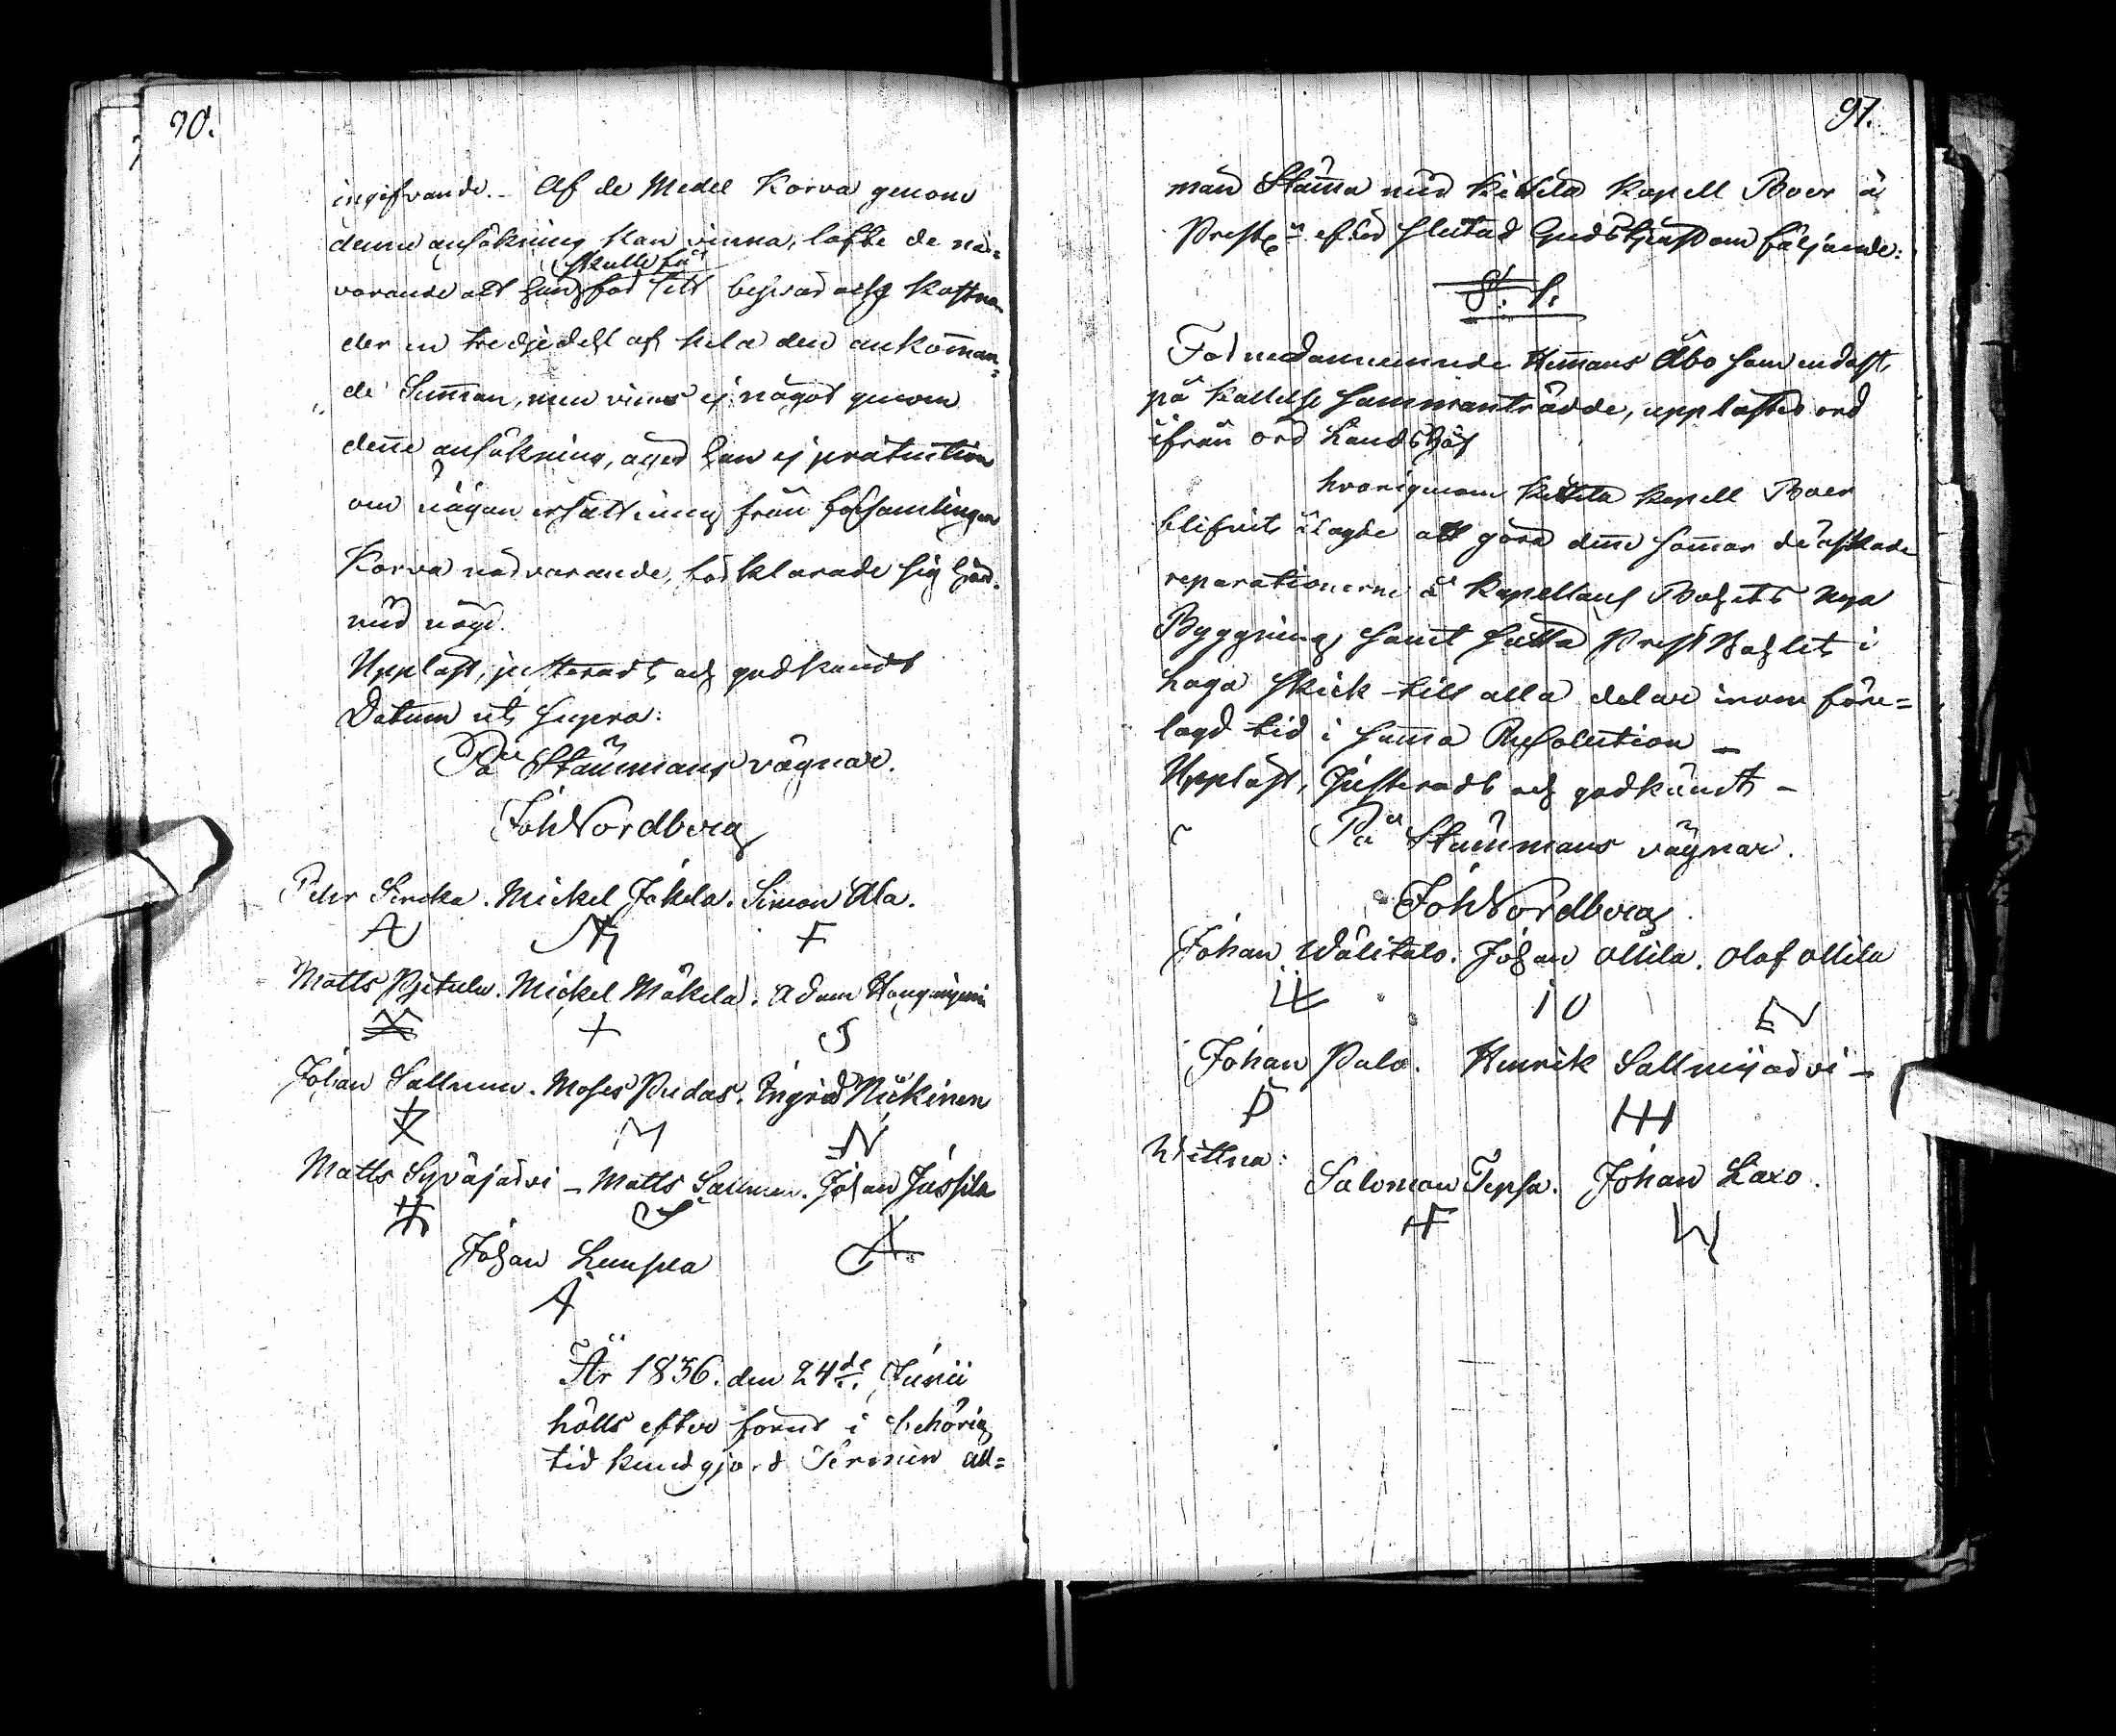 90.
ingifvande. Af de Medel Korva genom
denne ansökning kan vinna, låfte de när=
skulle få
varande att han för sitt besvär och kostna
der en tredjedel af hela den ankomman=
de Summan, men vinns ej något genom
denne ansökning, äger han ej
om någon ersättning från församlingen
Korva närvarande, förklarade sig här=
med nögd.
Uppläst, justeradt och godkändt
Datum ut supra:
På Stämmans vägnar.
Joh Nordberg
Peter Sirkka. Mickel Jokela. Simon Ala.
Matts. Mickel Mäkelä. Adam
Johan Sallinen. Moses Pudas. Ingrid Näkinen
Matts Syväjärvi - Matts Salinen. Johan Jussila
Johan Lumpea
År 1836. den 24de Junii
hölls efter förut i behörig
tid kundgjord Termin all=
91.
män Stämma med Kittilä Kapell Boer å
efter slutad Gudstjenst om följande:
§. 1.
För nedannämnde Hemmans Åbo som endast,
på kallelse sammanträdde, upplästes ord
ifrån ord Landshöf
hvarigenom Kittilä Kapell Boer
blifvit ålagde att göra denne sommar de äskade
reparationerne å Kapellans Bolets nya
Byggning samt sätta Prest Bolet i
laga skick till alla delar inom före=
lagd tid i samma Resolution -
Uppläst, Justeradt och godkändt -
På Stämmans vägnar.
Joh Nordberg
Johan Wälitalo. Johan Ollila. Olof Ollila
IO
Johan Palo. Henrik Sallnijärvi -
P
Wittna:
Salomon Tepsa. Johan Laxo.